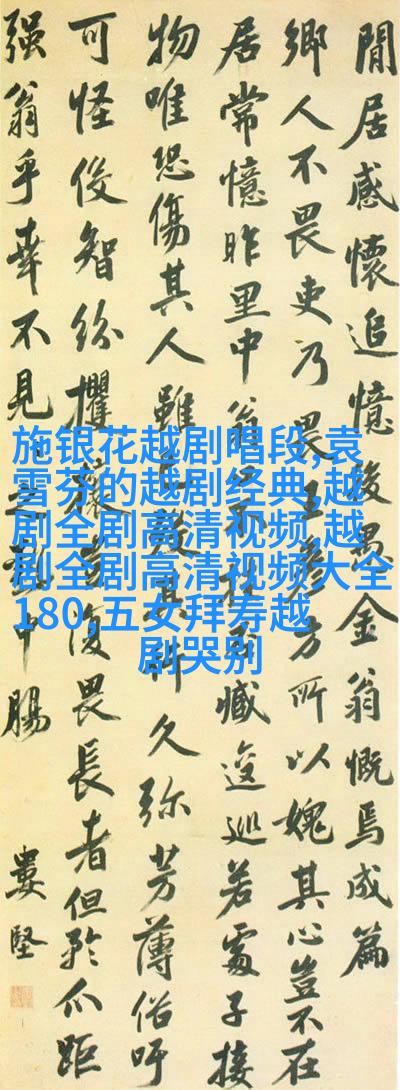 閒居感懷追憶金翁慨焉成篇
鄉人不畏吏乃畏王彥方所以媿其心豈不在
居常憶昨里中翁臧逡巡若處子接
物唯恐傷其人雖久弥芳薄俗吁
可怪俊智紛攫復畏長者但矜爪距
强翁乎幸不見中腸
婁堅
施银花越剧唱段,袁
雪芬的越剧经典,越
剧全剧高清视频,越
剧全剧高清视频大全
180,五女拜寿越
剧哭别